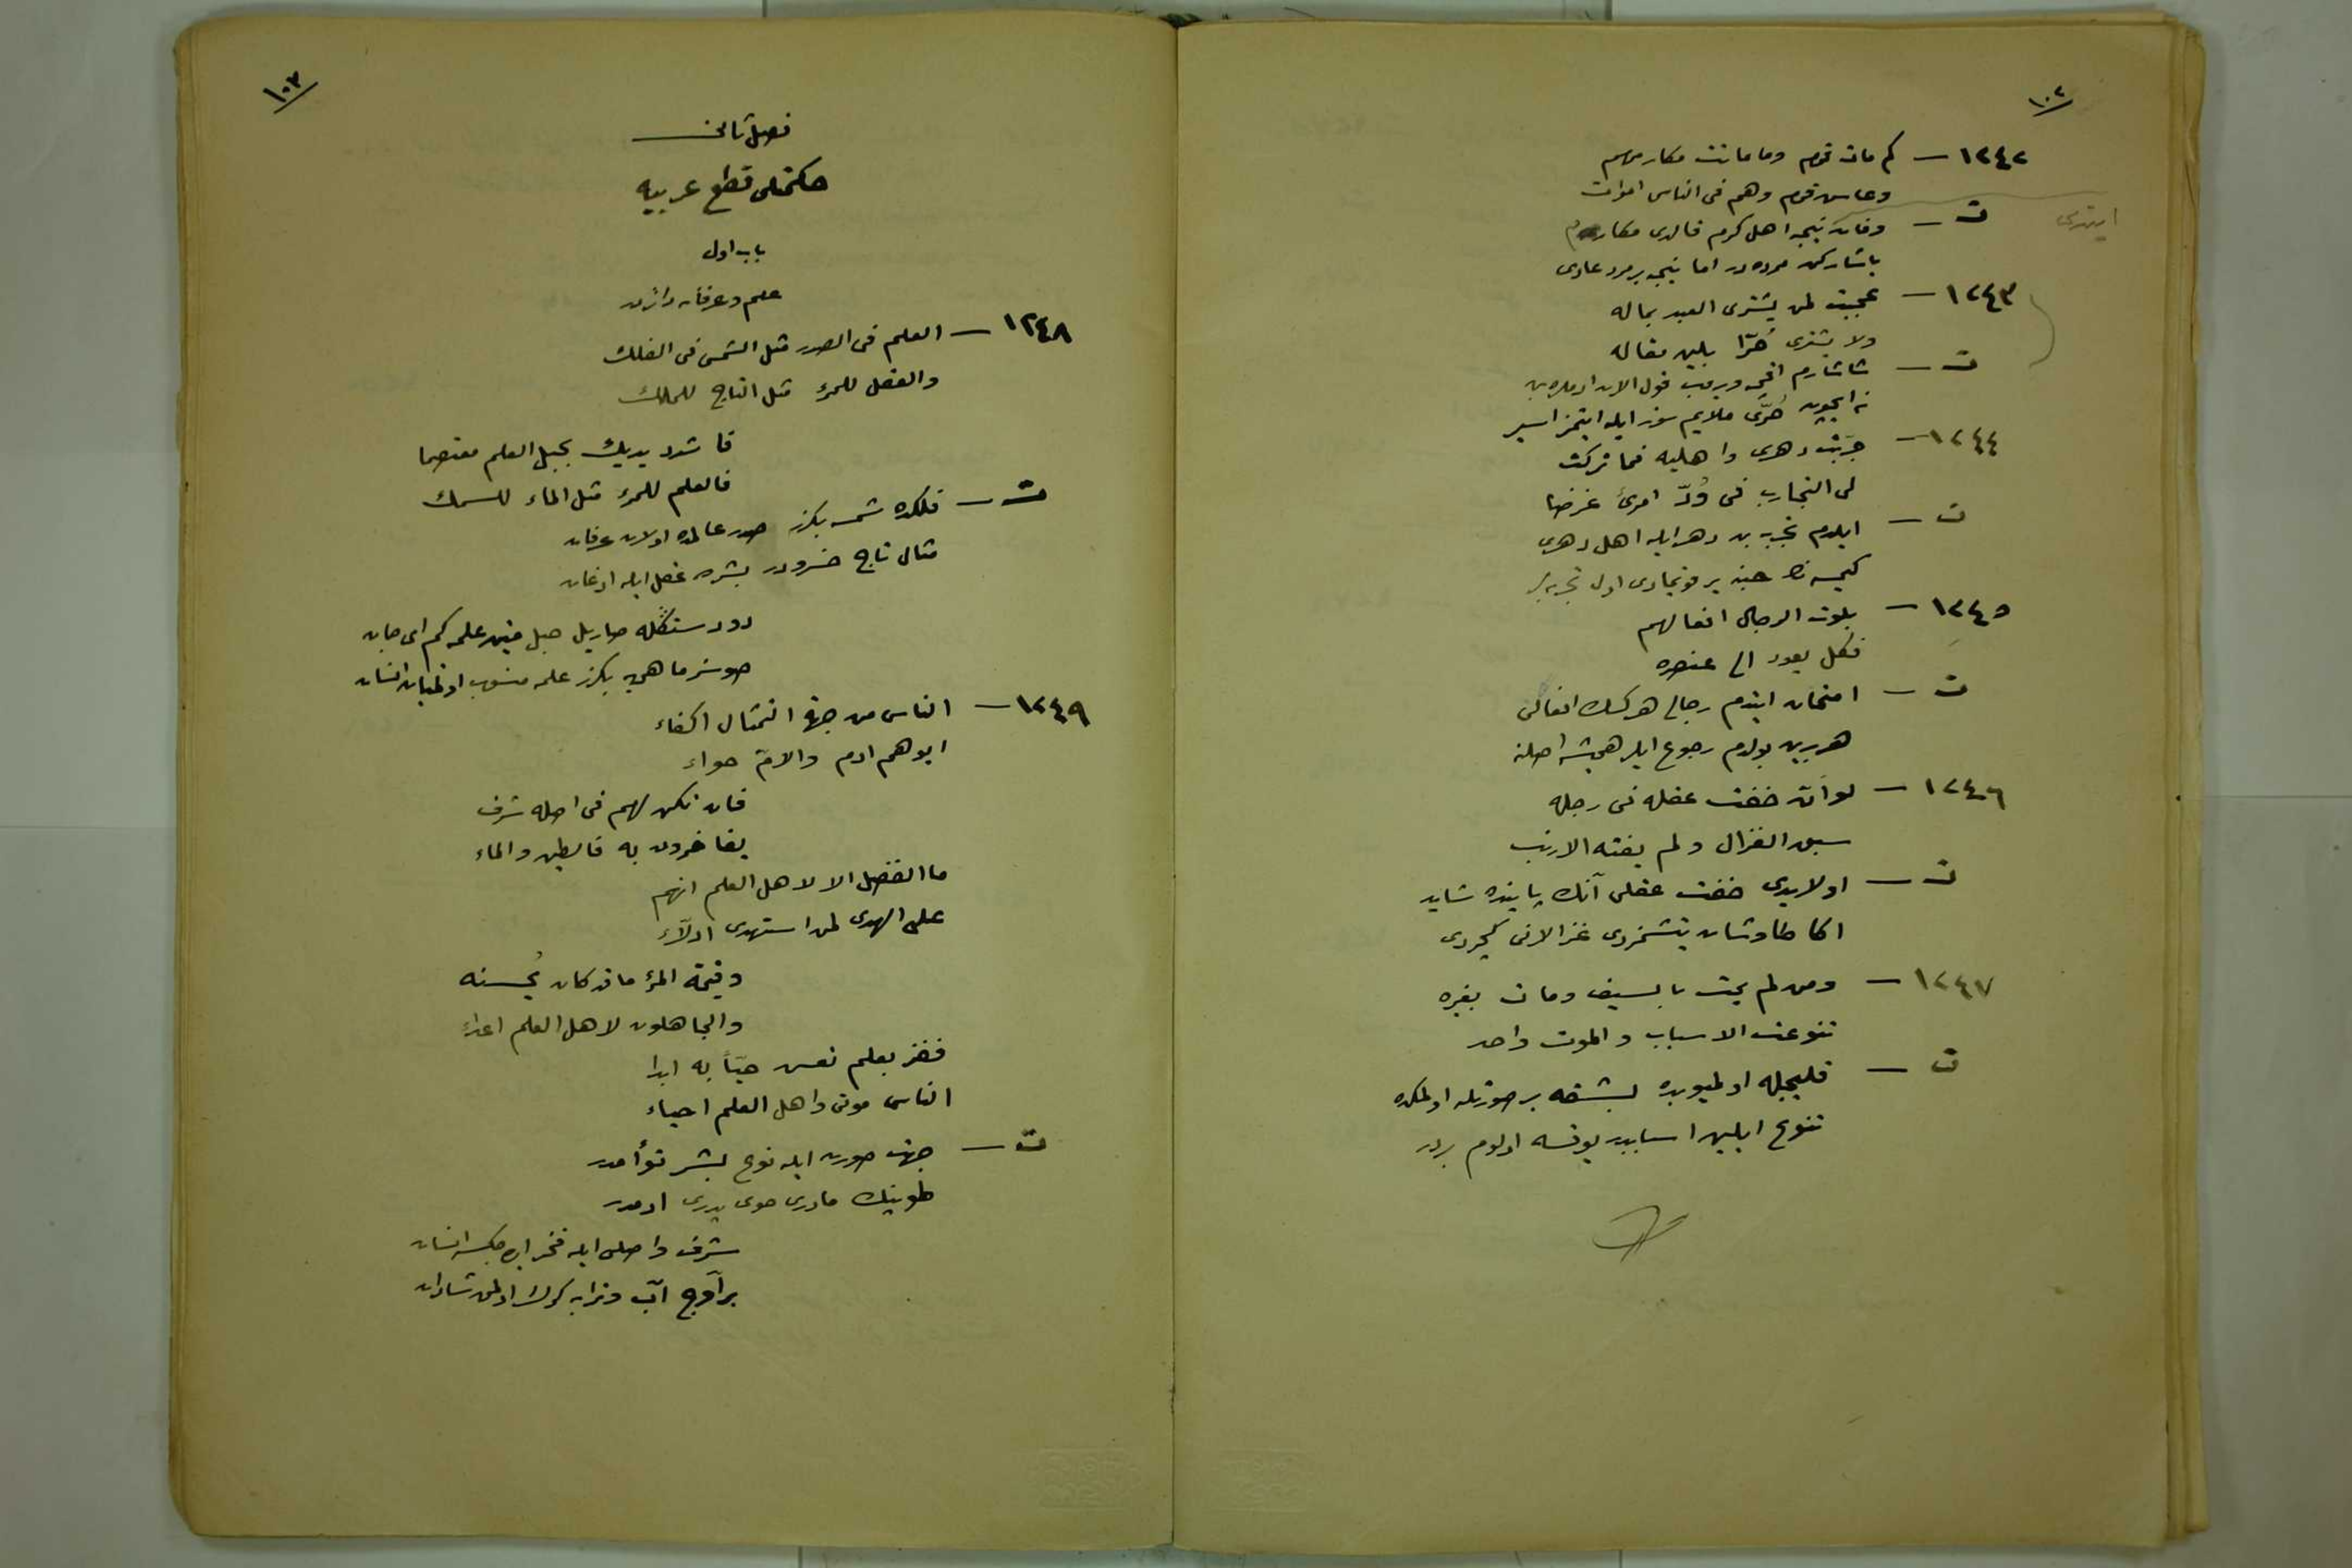 ١٠٢
١٢٤٢ – كم مات قوم وما ماتت مكارمهم
وعاش قوم وهم فى الناس اموات
ت – وفات نيجه اهل كرم قالدى مكارم
ياشاركن مرده در اما نيجه بر مرد عادى
١٢٤٣ – عجبت لمن يشترى العبد بماله
ولا يشترى حُرّا بلين مقاله
ت – شاشارم اقچه ويروب قول الان ادملره بن
نه ايچون حُرّى ملايم سوز ايله ايتمز اسير
١٢٤٤ – جرّبت دهرى واهليه فما تركت
لى التجارب فى وُدّ امرئ غرضا
ت – ايلدم تجربه بن دهر ايله اهل دهرى
كيمسه حبنه ير قويمادى اول تجربه لر
١٢٤٥ – بلوت الرجال افعالهم
فكل يعود الى عنصره
ت – امتحان ايتدم رجالى هركسك افعالنى
هر برين بولدم رجوع ايلر هميشه اصلنه
١٢٤٦ – لو انّ خفت عقله فى رجله
سبق الغزال ولم يفته الارنب
ت – اولايدى خفت عقلى آنك پاينده شايد
اكا طاوشان يتشمزدى غزالانى كچردى
١٢٤٧ – ومن لم يمت بالسيف ومات بغيره
تنوعت الاسباب والموت واحد
ت – قليجله اولميوبده بشقه بر صورتله اولمكده
تنوع ايلين اسبابدر يوقسه اولوم بردر
١٠٣
فصل ثانى
حكمتلى قطع عربيه
باب اول
علم وعرفانه دائر
١٢٤٨ – العلم فى الصدر مثل الشمس فى الفلك
والعقل للمرء مثل التاج للملك
فاشدد يديك بحبل العلم معتصما
فالعلم للمرء مثل الماء للسمك
ت – فلكده شمسه بكزر صدر عالمده اولان عرفان
مثال تاج خسرودر بشره عقل ايله اذعان
دو دستكله صاريل حبل متين علمه كم اى جان
صوسز ماهى يه بكزر علمه منسوب اولميان انسان
١٢٤٩ – الناس من جهة التمثال اكفاء
ابوهم ادم والامّ حواء
فان تكن لهم فى اصله شرف
يفاخرون به فالطين والماء
ما الفضل الا لاهل العلم انهم
على الهدى لمن استهدى ادلاّء
وقيمة المرء ما قد كان يُحسنه
والجاهلون لاهل العلم اعداء
ففز بعلم تعش حيّاً به ابدا
الناس موتى واهل العلم احياء
ت – جهت صورت ايله نوع بشر توأمدر
طوپينك مادرى حوى پدرى ادمدر
شرف واصلى ايله فخر ايده جكسه انسان
بر آوج آب وترابه كرك اولمق شادان